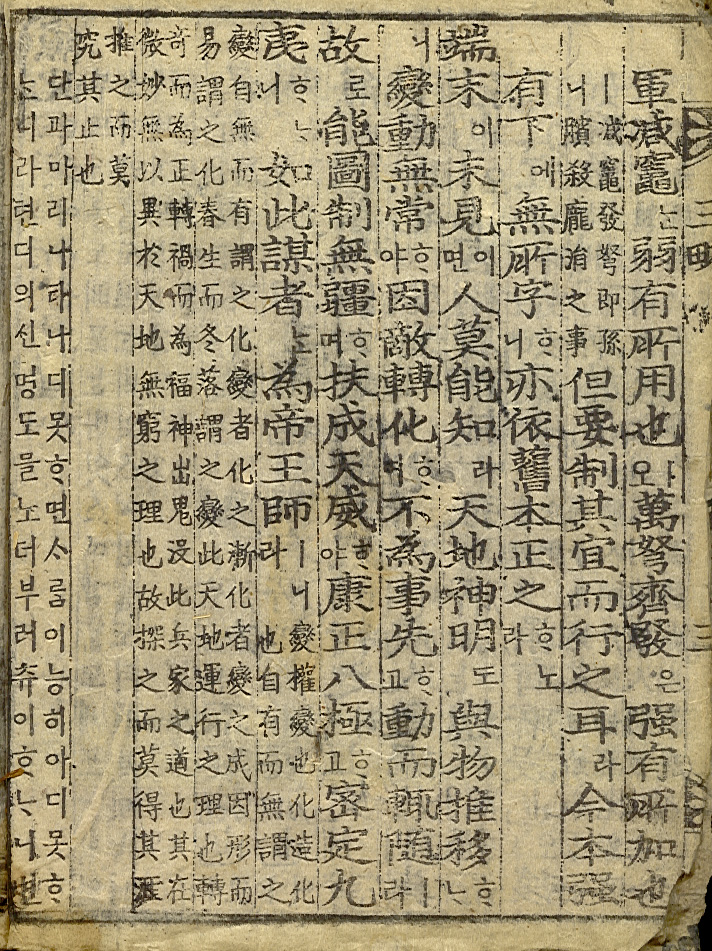 軍减竈ᄂᆞᆫ弱有所用也ㅣ오萬弩齊發은强有所加也
ㅣ减竈發弩即孫
니臏殺龐涓之事但要制其宜而行之耳라今本强
有下에無所字ᄒᆞ니亦依舊本正之ᄒᆞ노라
端末이未見이면人莫能知라天地神明도與物推移ᄒᆞᄂᆞ
니變動無常ᄒᆞ야因敵轉化ᄒᆞ며不為事先ᄒᆞ고動而輒隨ㅣ라
故로能圖制無疆ᄒᆞ며扶成天威ᄒᆞ야康正八極ᄒᆞ고密定九
夷ᄒᆞᄂᆞ니如此謀者ᄂᆞᆫ為帝王師ㅣ니라變權變也化造化
也自有而無謂之
變自無而有謂之化變者化之漸化者變之成因形而
易謂之化春生而冬落謂之變此天地運行之理也轉
奇而為正轉禍而為福神出鬼没此兵家之道也其在
微妙無以異於天地無窮之理也故探之而莫得其涯
推之而莫
究其止也
단과마리나타나디못ᄒᆞ면사ᄅᆞᆷ이능히아디못ᄒᆞ
ᄂᆞ니라텬디의신명도믈노더부러츄이ᄒᆞᄂᆞ니변